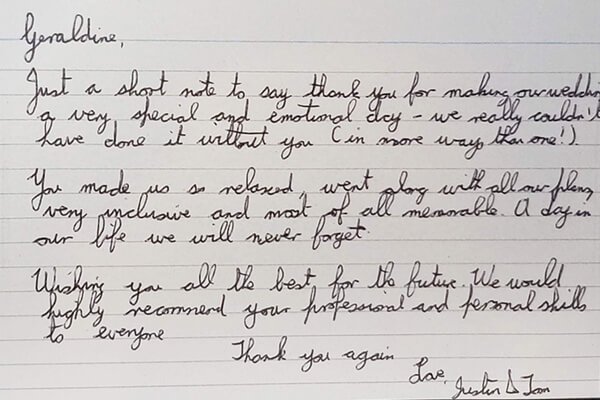 Geraldine,
Just a short note to say thank you for making our wedding
a very special and emotional day - we really couldn't
have done it without you (in more ways than one!).
You made us so relaxed, went along with all our plans,
very inclusive and most of all memorable. A day in
our life we will never forget.
Wishing you all the best for the future. We would
highly recommend your professional and personal skills
to everyone
Thank you again
Love,
Justin &